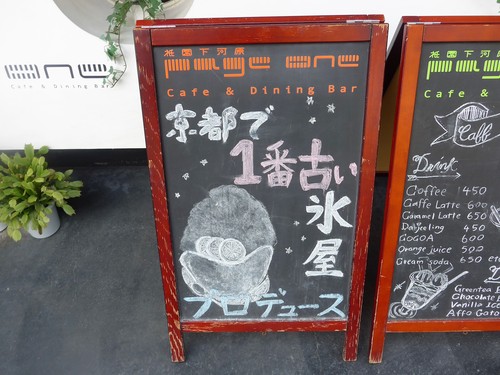 one
Cafe & Dining Bar
祇園下河原
page one
Cafe & Dining Bar
京都で
1番古い
氷屋
プロデュース
祇園下河原
page
Cafe &
Caffé
Drink
Coffee 450
Caffe Latte 600
Caramel Latte 650
Darjeeling 450
COCOA 600
Orange juice 500
Cream soda 650 etc
Greentea
Chocolate
Vanilla ICE
Affogato